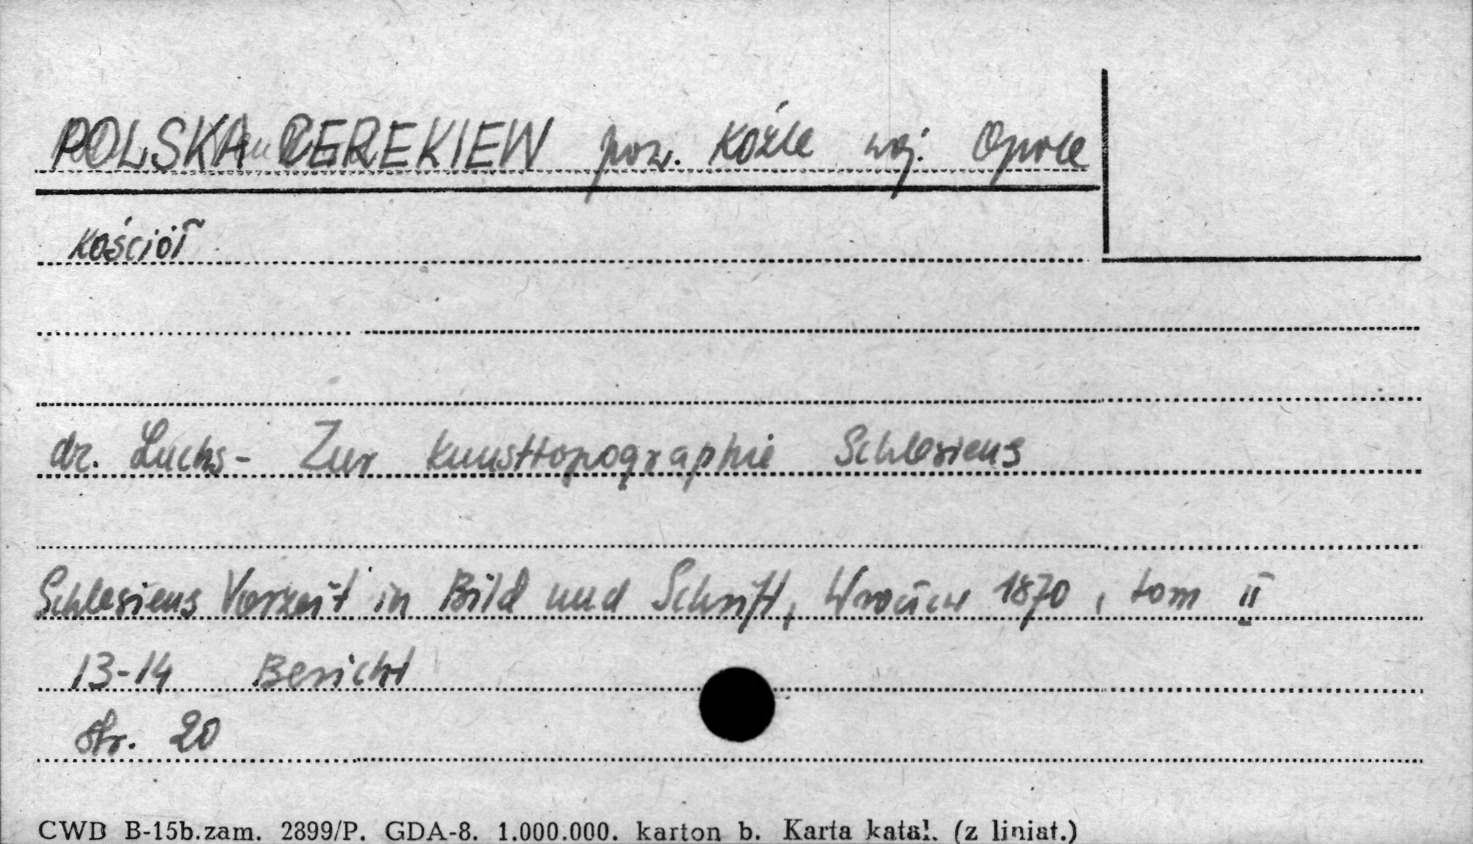 POLSKA CEREKIEW pow. Koźle woj. Opole
Kościół
dr. Luchs - Zur Kunsttopographie Schlesiens
Schlesiens Vorzeit in Bild und Schrift, Wrocław 1870, tom II
13-14 Bericht
str. 20
CWD B-15b.zam. 2899/P. GDA-8. 1.000.000. karton b. Karta katal. (z liniat.)